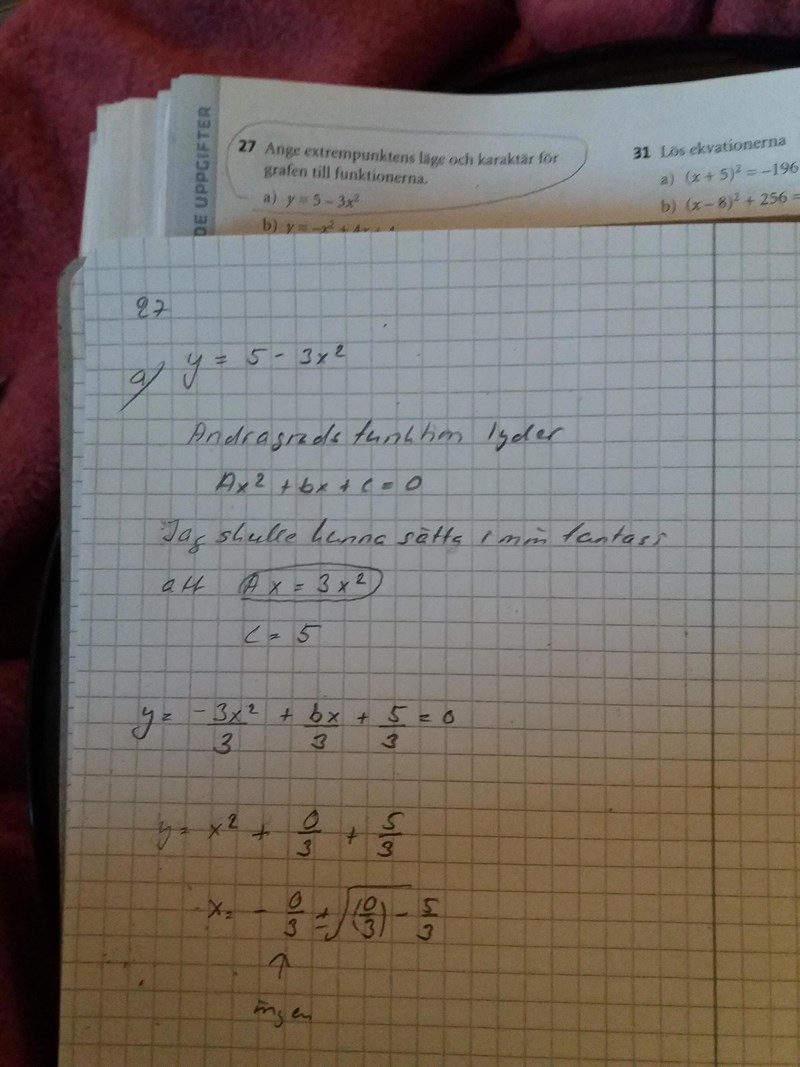 DE UPPGIFTER
27 Ange extrempunktens läge och karaktär för
grafen till funktionerna.
a) y = 5 – 3x²
b) y = –x² + 4x +
31 Lös ekvationerna
a) (x + 5)² = –196
b) (x – 8)² + 256 =
27
a) y = 5 - 3x²
Andragrads funktion lyder
Ax² + bx + c = 0
Jag skulle kunna sätta i min fantasi
att Ax = 3x²
C = 5
y = -3x²/3 + bx/3 + 5/3 = 0
y = x² + 0/3 + 5/3
x = - 0/3 ± √(0/3) - 5/3
↑
ingen